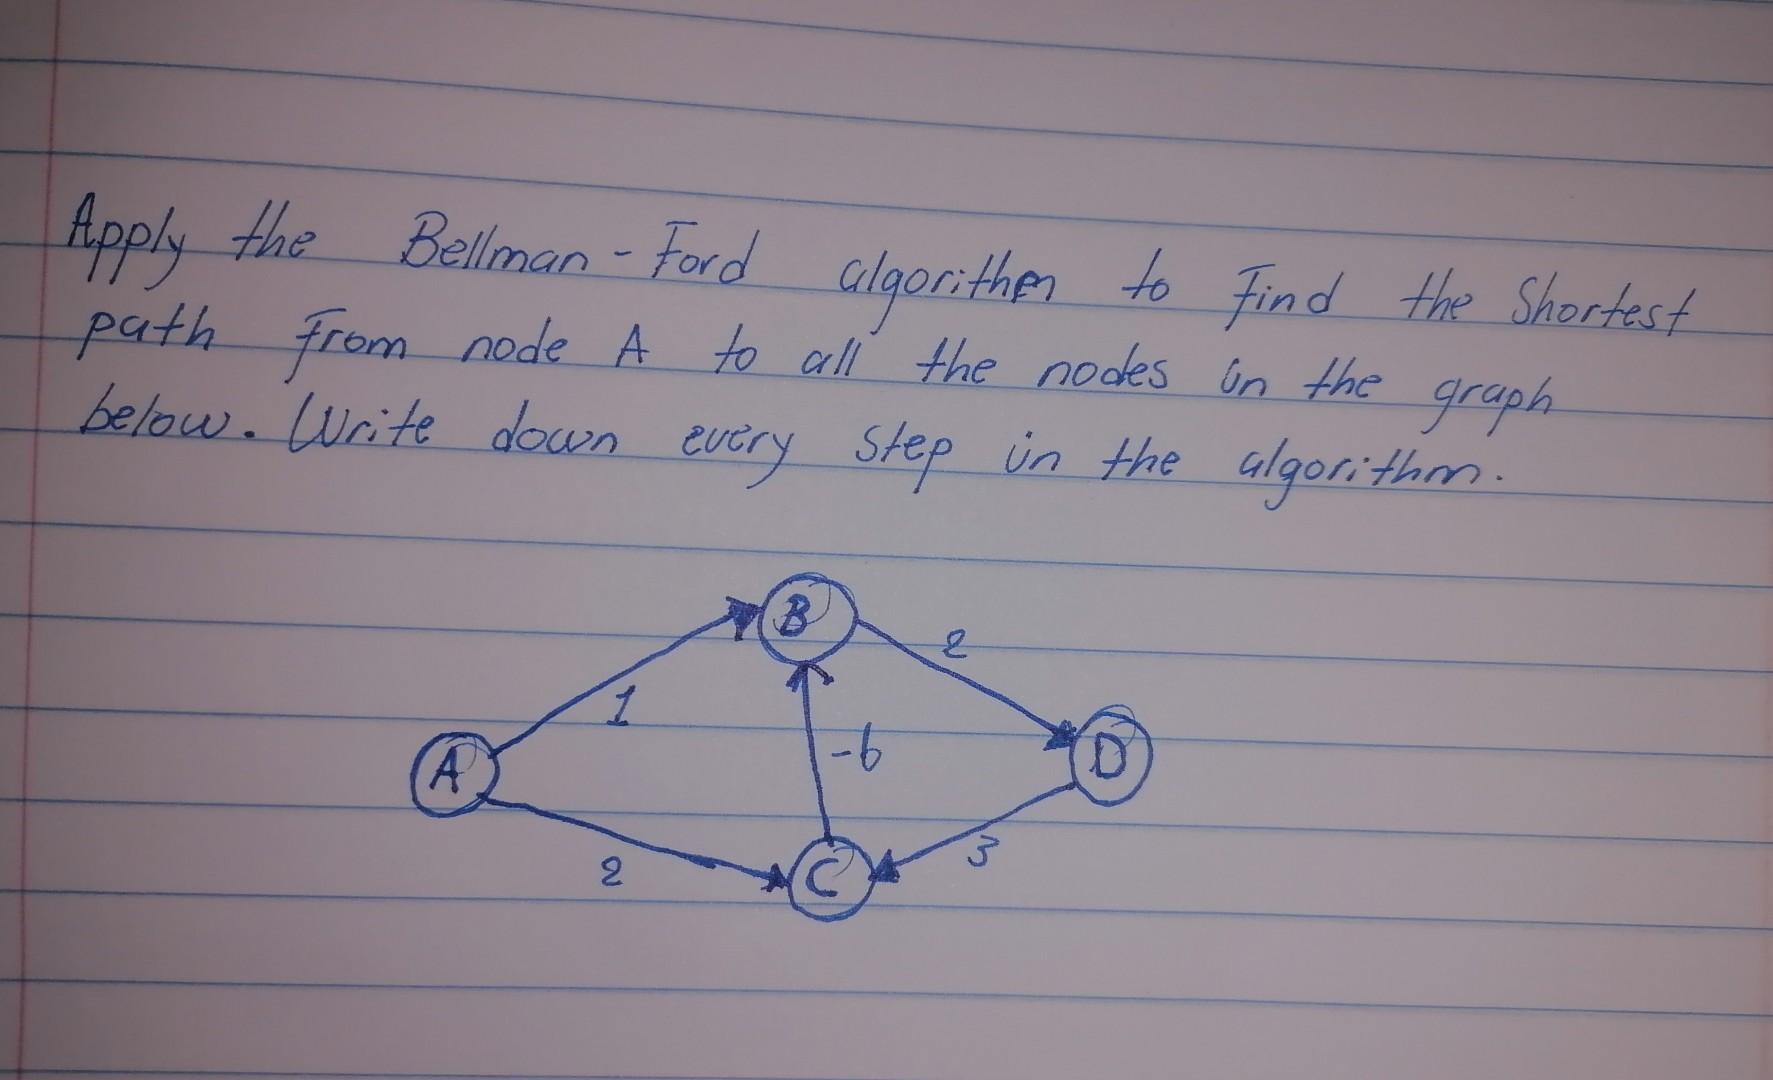 Apply the Bellman-Ford algorithm to find the Shortest
path from node A to all the nodes in the graph
below. Write down every step in the algorithm.
B
2
1
A
-6
D
2
C
3